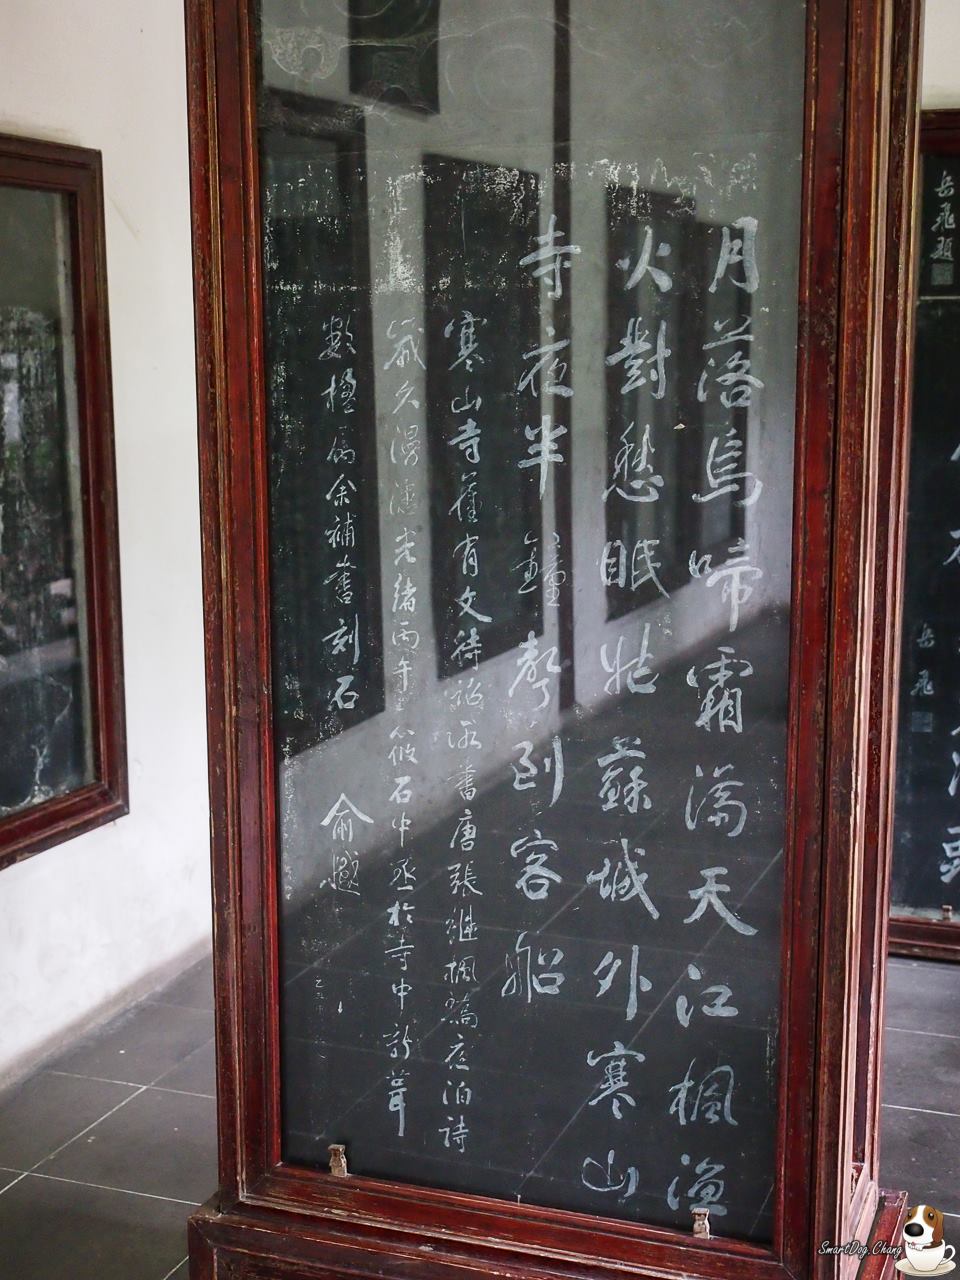 月落烏啼霜滿天江楓漁
火對愁眠姑蘇城外寒山
寺夜半鐘聲到客船
寒山寺舊有文待詔所書唐張繼楓橋夜泊詩
歲久漫漶光緒丙午筱石中丞於寺中新葺
數楹屬余補書刻石 俞樾
岳飛題
岳飛
SmartDog.Chang